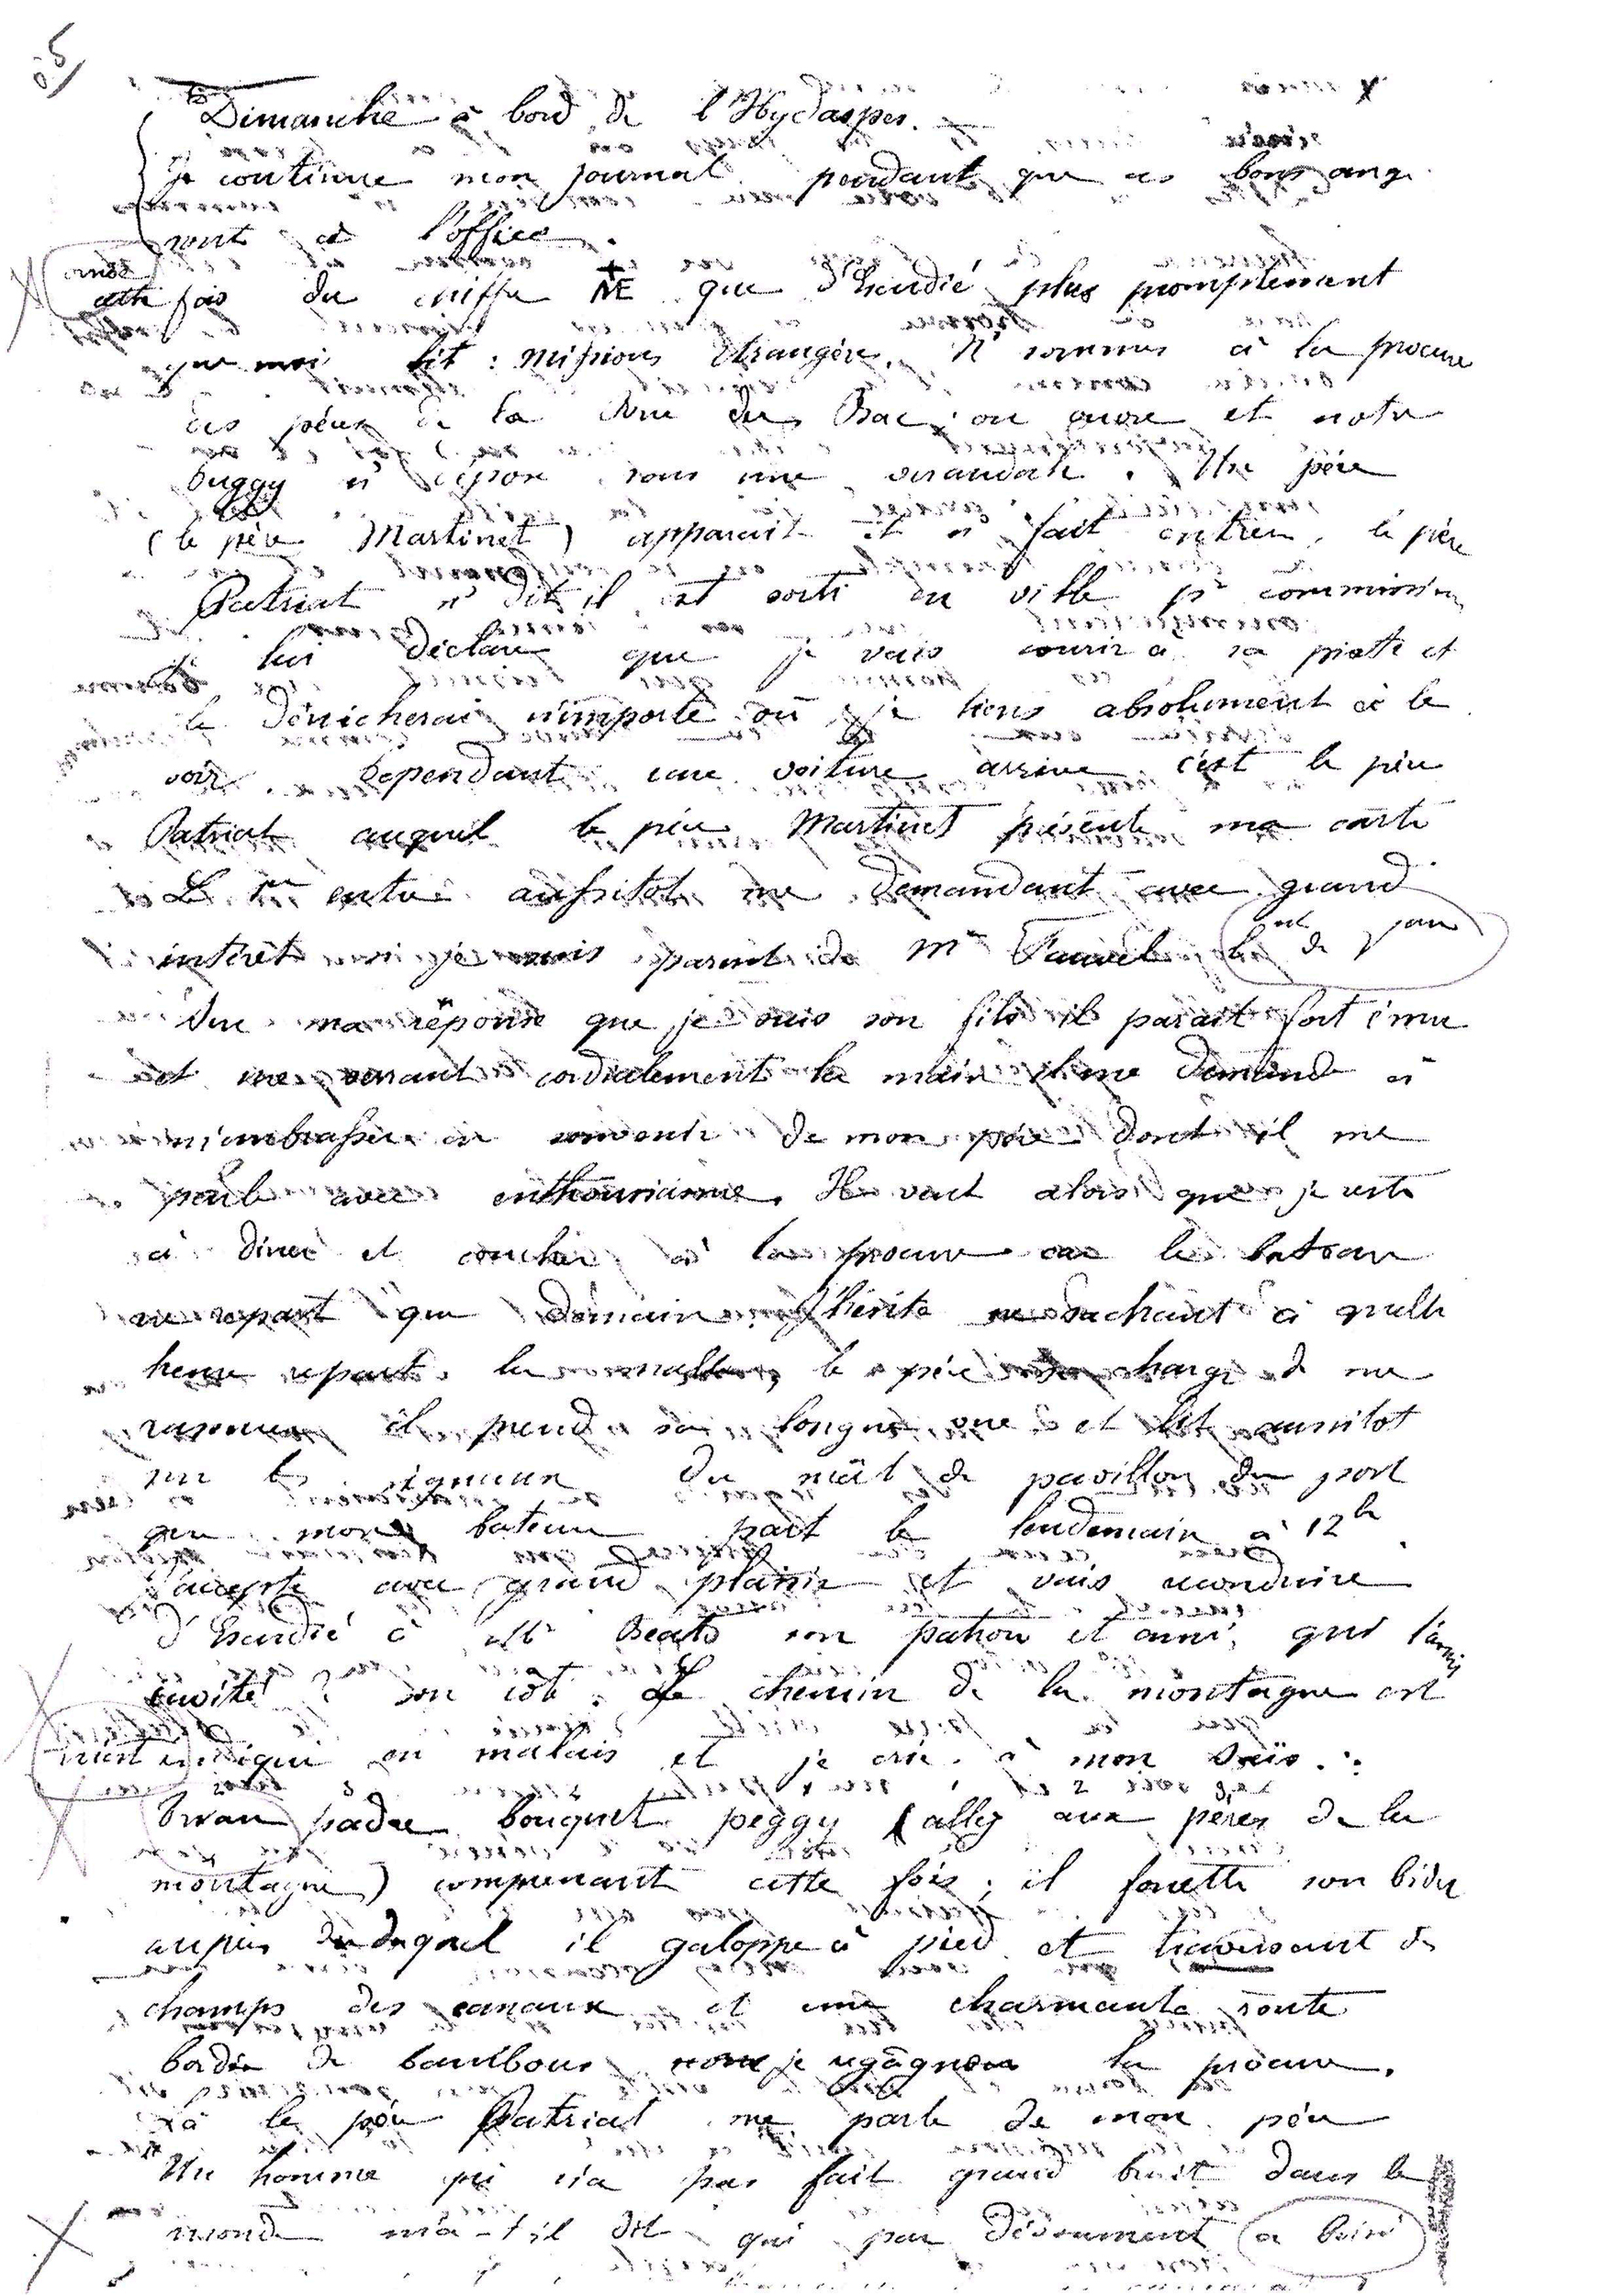 Dimanche à bord de l'Hydaspes.
Je continue mon journal pendant que ces bons ang
sont à l'office.
cette fois du chiffre ME que d'Escudié plus promptement
que moi lit : missions étrangères. Ns sommes à la procure
des pères de la Rue du Bac, on ouvre et notre
buggy ns dépose sous une verandah. Un père
(le père Martinet) apparait et ns fait entrer, le père
Patriat ns dit il est sorti en ville pr commissions
je lui déclare que je vais courir à sa piste et
le dénicherai n'importe où je tiens absolument à le
voir. Cependant une voiture arrive c'est le père
Patriat auquel le père Martinet présente ma carte
Le 1er entre aussitot me demandant avec grand
intérêt si je suis parent de Mr
Sur ma réponse que je suis son fils il parait fort ému
et me serrant cordialement la main il me demande à
m'embrasser en souvenir de mon père dont il me
parle avec enthousiasme. Il veut alors que je reste
à diner et coucher à la procure car le bateau
ne repart que demain. J'hésite ne sachant à quelle
heure repart la malle, le père se charge de me
rassurer il prend sa longue vue et lit aussitot
sur les signaux du mât de pavillon du port
que mon bateau part le lendemain à 12h
J'accepte avec grand plaisir et vais reconduire
d'Escudié à Mr Beato son patron et ami, qui l'a
invité de son côté. Le chemin de la montagne est
indiqué en malais et je crie à mon Saïs :
padre bouquet peggy (allez aux pères de la
montagne) comprenant cette fois, il fouette son bidet
auprès duquel il galoppe à pied et traversant des
champs des canaux et une charmante route
bordée de bambous je regagne la procure.
Là le père Patriat me parle de mon père
Un homme qui n'a pas fait grand bruit dans le
monde m'a-t-il dit qui par dévouement a